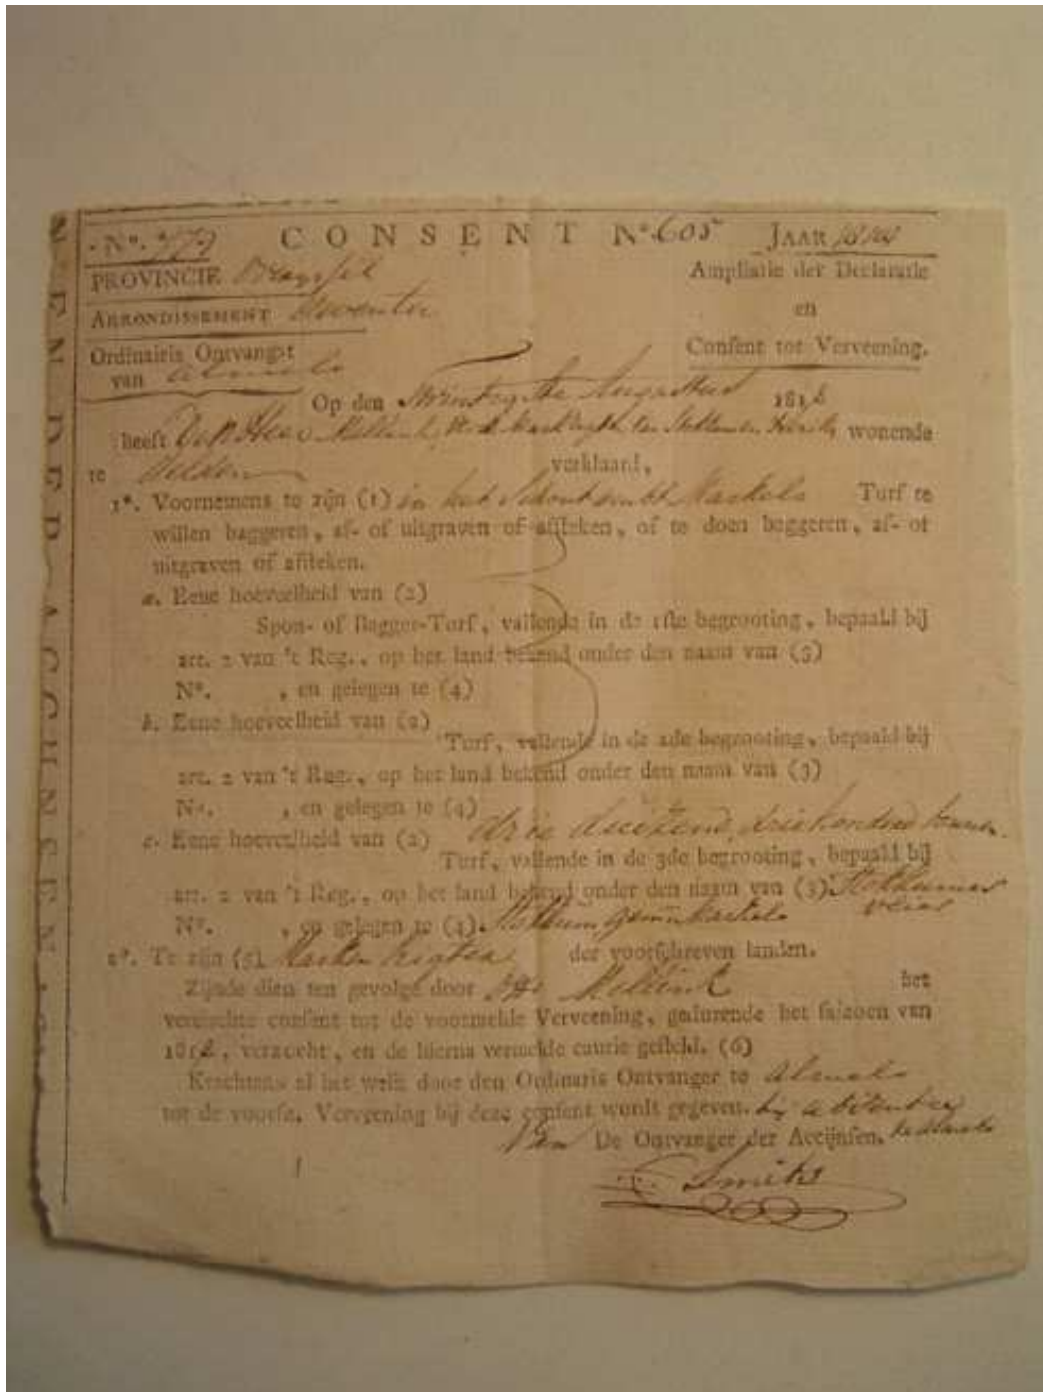 N°. 779 CONSENT N°. 605 JAAR 1818
PROVINCIE Overijssel
Ampliatie der Declaratie
ARRONDISSEMENT
en
Ordinairis Ontvangst
Consent tot Verveening.
van Almelo
Op den Augustus 181
heeft De Heer wonende
te Delden verklaard,
1°. Voornemens te zijn (1) in het Schoutambt Markelo Turf te
willen baggeren, af- of uitgraven of afsteken, of te doen baggeren, af- of
uitgraven of afsteken.
a. Eene hoeveelheid van (2)
Spon- of Bagger-Turf, vallende in de 1ste begrooting, bepaald bij
art. 2 van 't Reg., op het land bekend onder den naam van (3)
N°. , en gelegen te (4)
b. Eene hoeveelheid van (2)
Turf, vallende in de 2de begrooting, bepaald bij
art. 2 van 't Reg., op het land bekend onder den naam van (3)
N°. , en gelegen te (4)
c. Eene hoeveelheid van (2) drie duizend driehonderd tonnen
Turf, vallende in de 3de begrooting, bepaald bij
art. 2 van 't Reg., op het land bekend onder den naam van (3) Stokkumer
N°. , en gelegen te (4). Stokkum Markelo
2°. Te zijn (5) Marken Rigter der voorschreven landen.
Zijnde dien ten gevolge door Mellink het
vereischte consent tot de voormelde Verveening, gedurende het saizoen van
181 , verzocht, en de hierna vermelde cautie gesteld. (6)
Krachtens al het welk door den Ordinaris Ontvanger te Almelo
tot de voorsz. Verveening bij deze consent wordt gegeven. bij absentie
Van De Ontvanger der Accijnsen.
Smits